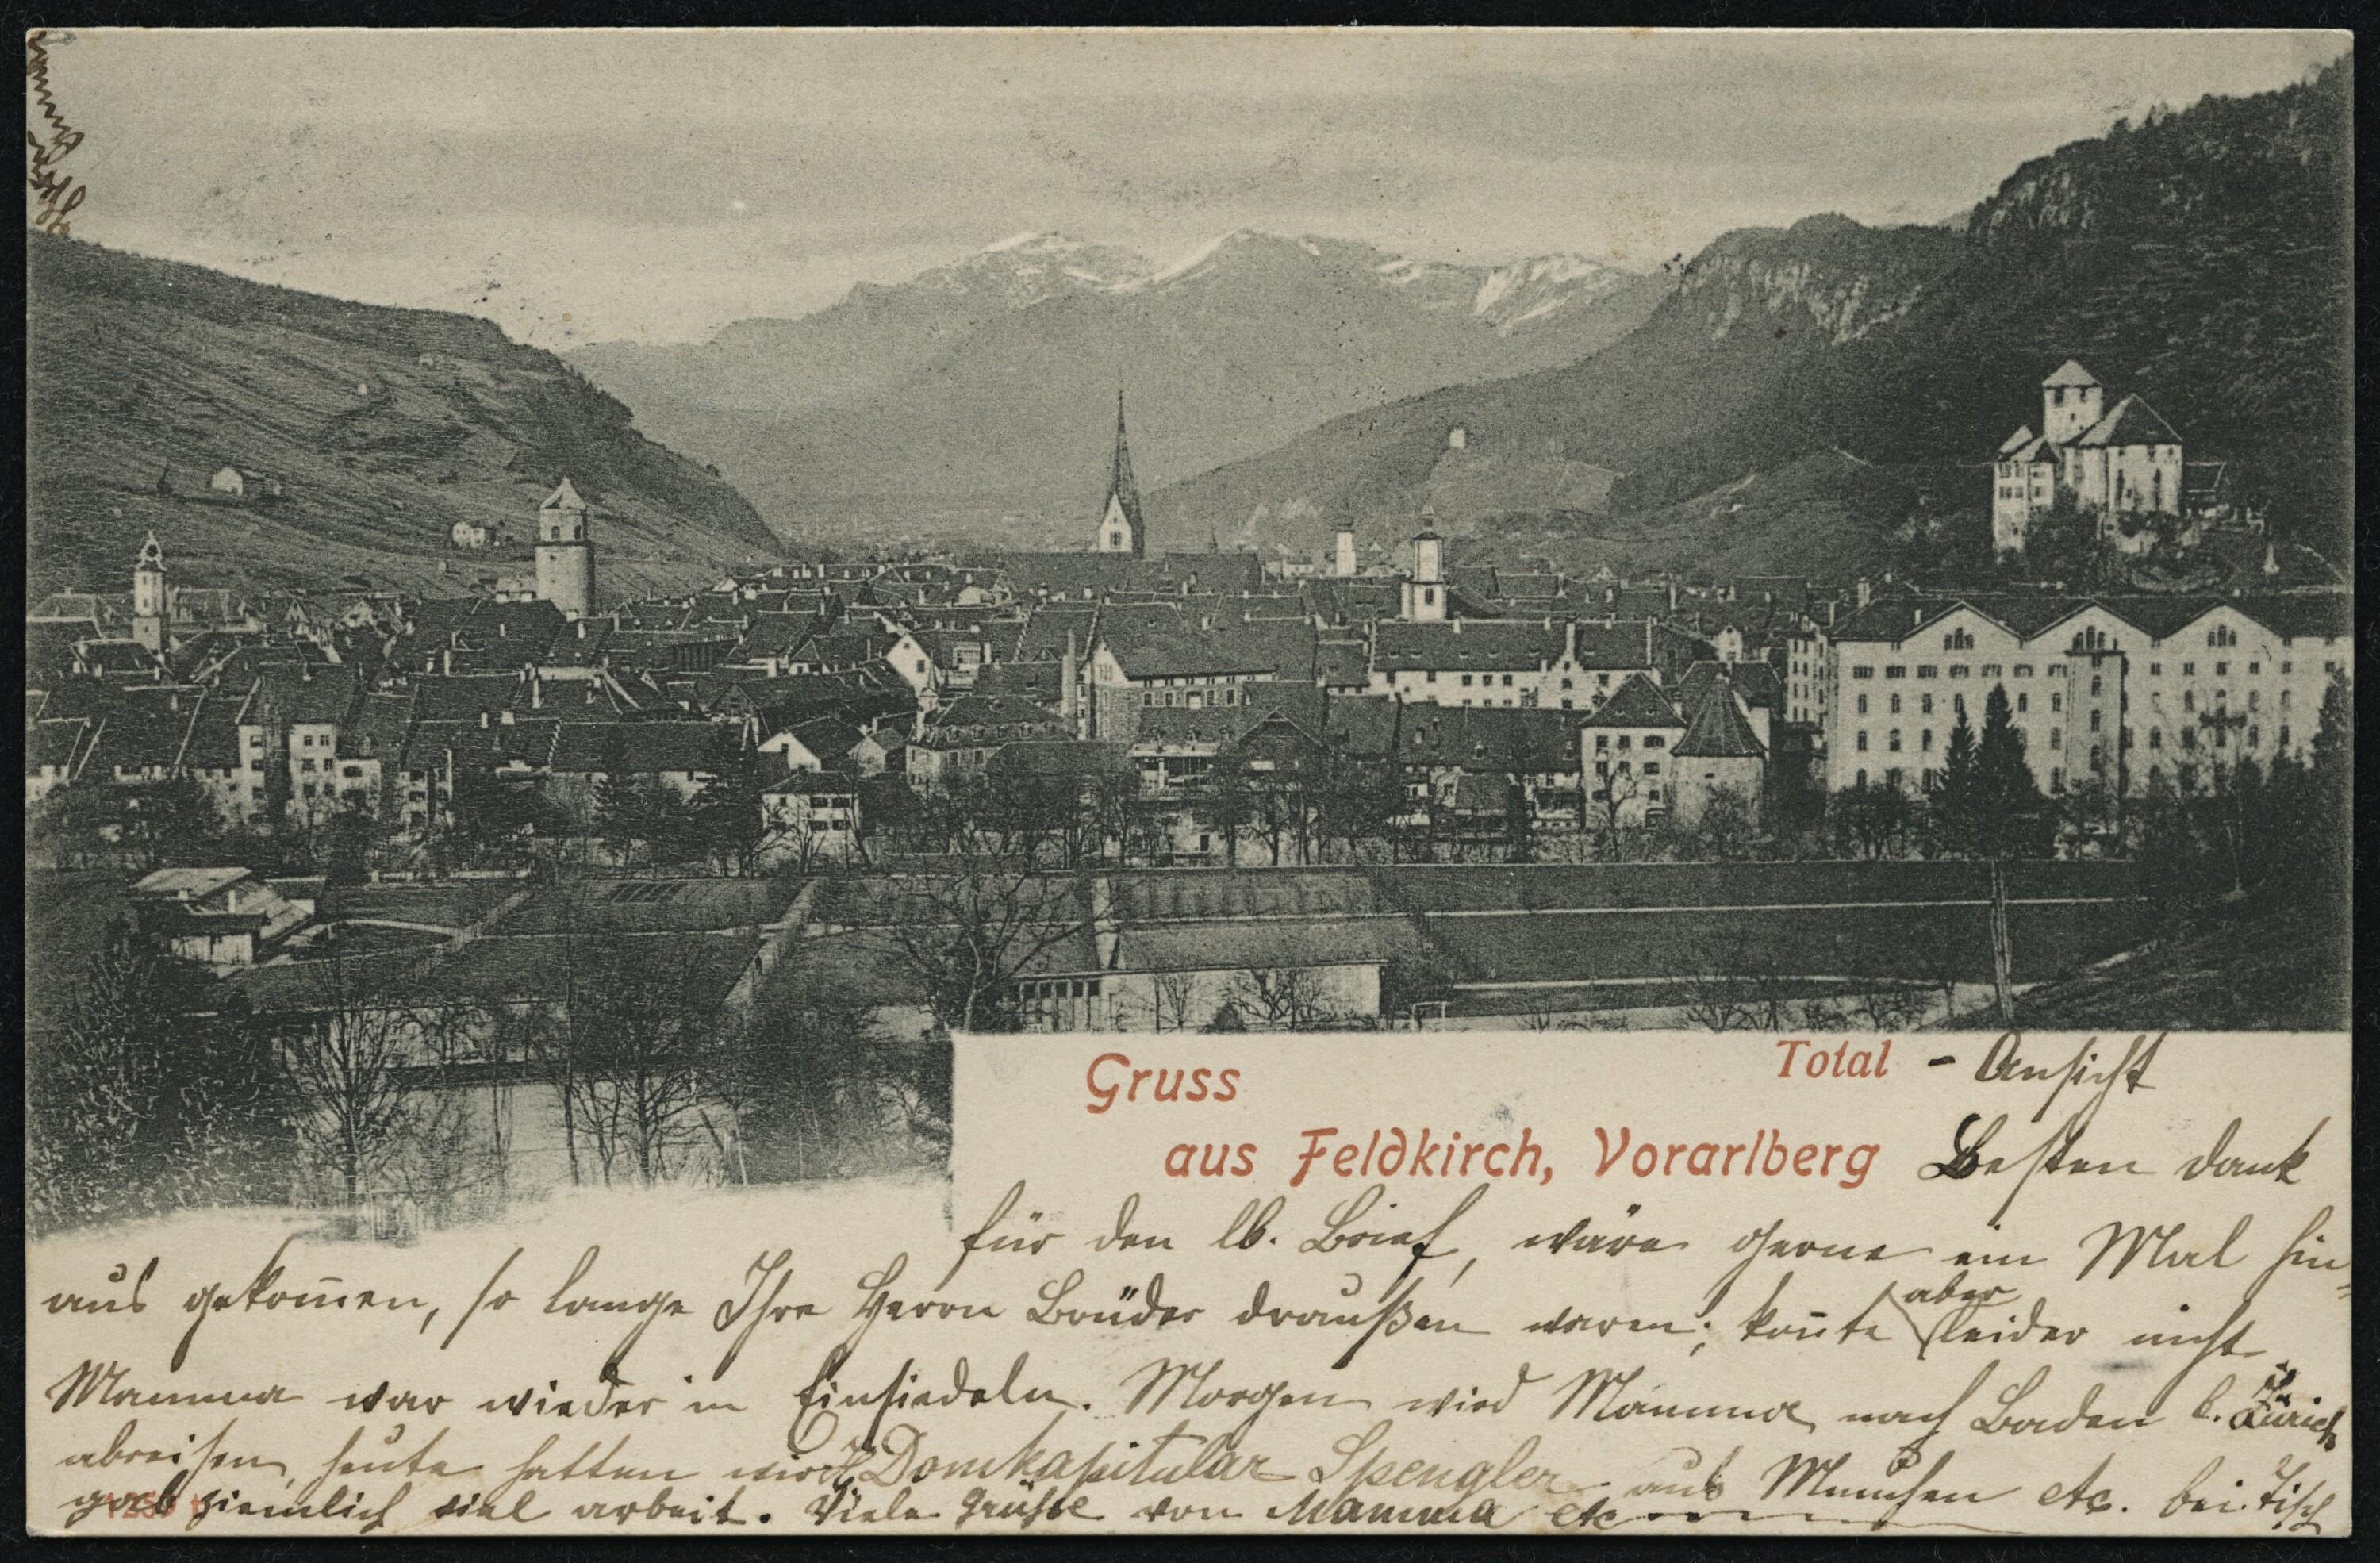 Gruss
aus Feldkirch, Vorarlberg
Total - Ansicht
Besten dank
für den lb. Brief, wäre gerne ein Mal hin=
aus gekom̄en, so lange Ihre Herrn Brüder draußen waren; kon̄te aber leider nicht
Mamma war wieder in Einsiedeln. Morgen wird Mamma nach Baden b. Zürich
abreisen, heute hatten wir Domkapitular Spengler aus München etc. bei Tisch
gab ziemlich viel arbeit. Viele Grüße von Mamma etc